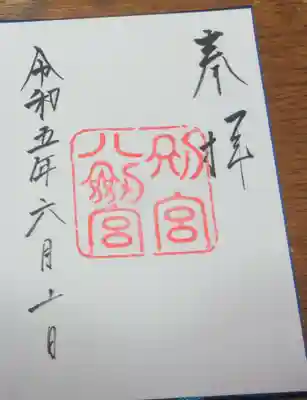 奉拝
別宮
八剣宮
令和五年六月十一日